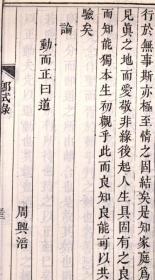 行於無事斯亦極至情之固結矣是知家庭爲
見眞之地而愛敬非緣後起人生具固有之良
而知能獨本生初觀乎此而良知良能可以共
驗矣
論
動而正曰道
周興
式錄